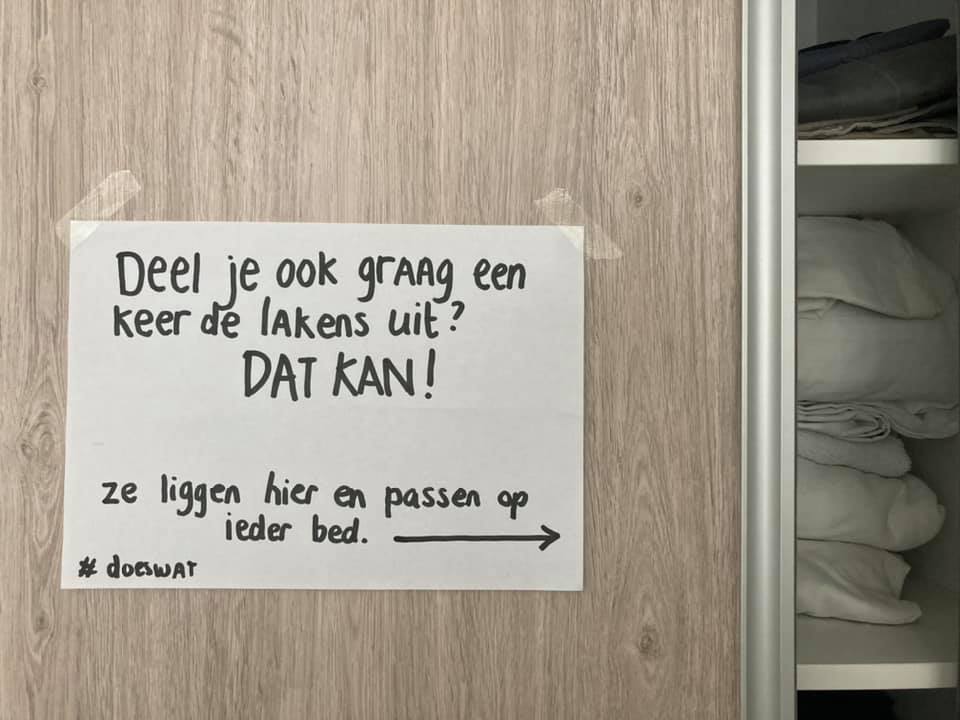 Deel je ook graag een
keer de lakens uit?
DAT KAN!
ze liggen hier en passen op
ieder bed.
# doeswat